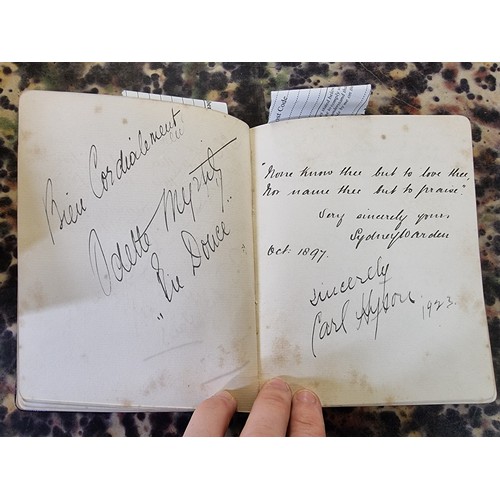 Bien Cordialement
Odette Myrtil
"Vin Douce"
"None know thee but to love thee,
Nor name thee but to praise".
Very sincerely yours
Sydney Warden
Oct: 1897.
Sincerely
Carl Hyson
1923.